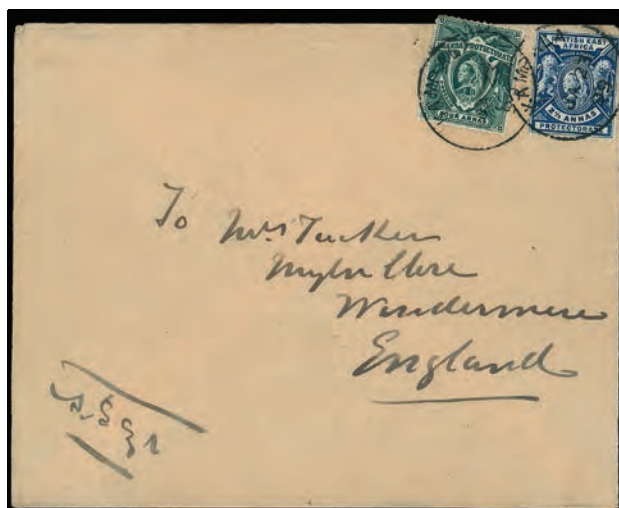 UGANDA PROTECTORATE
FOUR ANNAS
BRITISH EAST
AFRICA
2½ ANNAS
PROTECTORATE
KAMPALA
To Mrs Tucker
Windermere
England